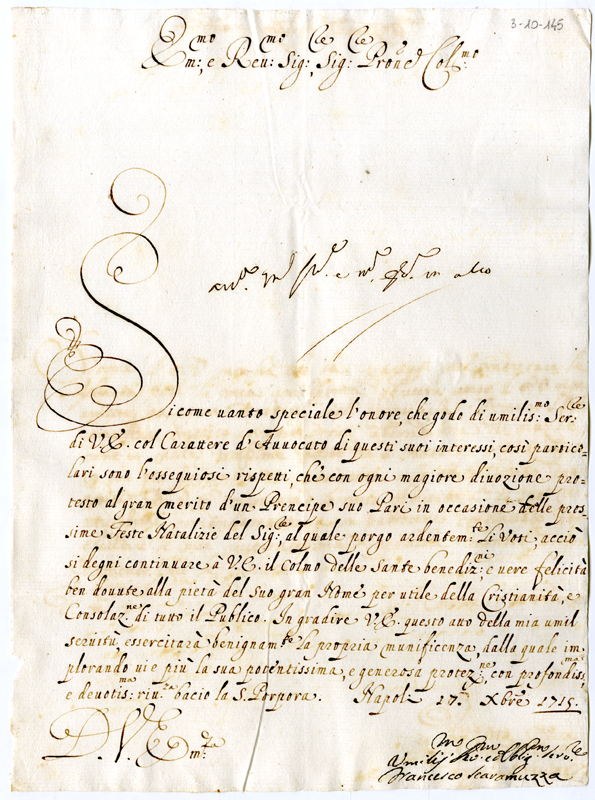 3-10-145
Em:mo, e Reu:mo Sig:re Sig:re Prone Col:mo
Sicome uanto speciale l'onore, che godo di umilis:mo Ser:re
di V.E. col Carattere d'Auuocato di questi suoi interessi, così partico-
lari sono l'ossequiosi rispetti, che con ogni magiore diuozione pro-
testo al gran merito d'un Prencipe suo Pari in occasione delle pros-
sime Feste Natalizie del Sig:re, al quale porgo ardentem:te Li Voti, acciò
si degni continuare à V.E. il Colmo delle sante benediz:ni, e uere felicità
ben douute alla pietà del suo gran Nome per utile della Cristianità, e
Consolaz:ne di tutto il Publico. In gradire V.E. questo atto della mia umil
seruitù, essercitarà benignam:te la propria munificenza, dalla quale im
plorando uie più la sua potentissima, e generosa protez:ne, con profondiss:ma
e deuotis:ma riu:za bacio la S. Porpora. Napoli 17. Xbre 1715.
D.V.Em:za
Umilis:mo Deuo: ed Oblig: Seru:re
Francesco Scaramuzza